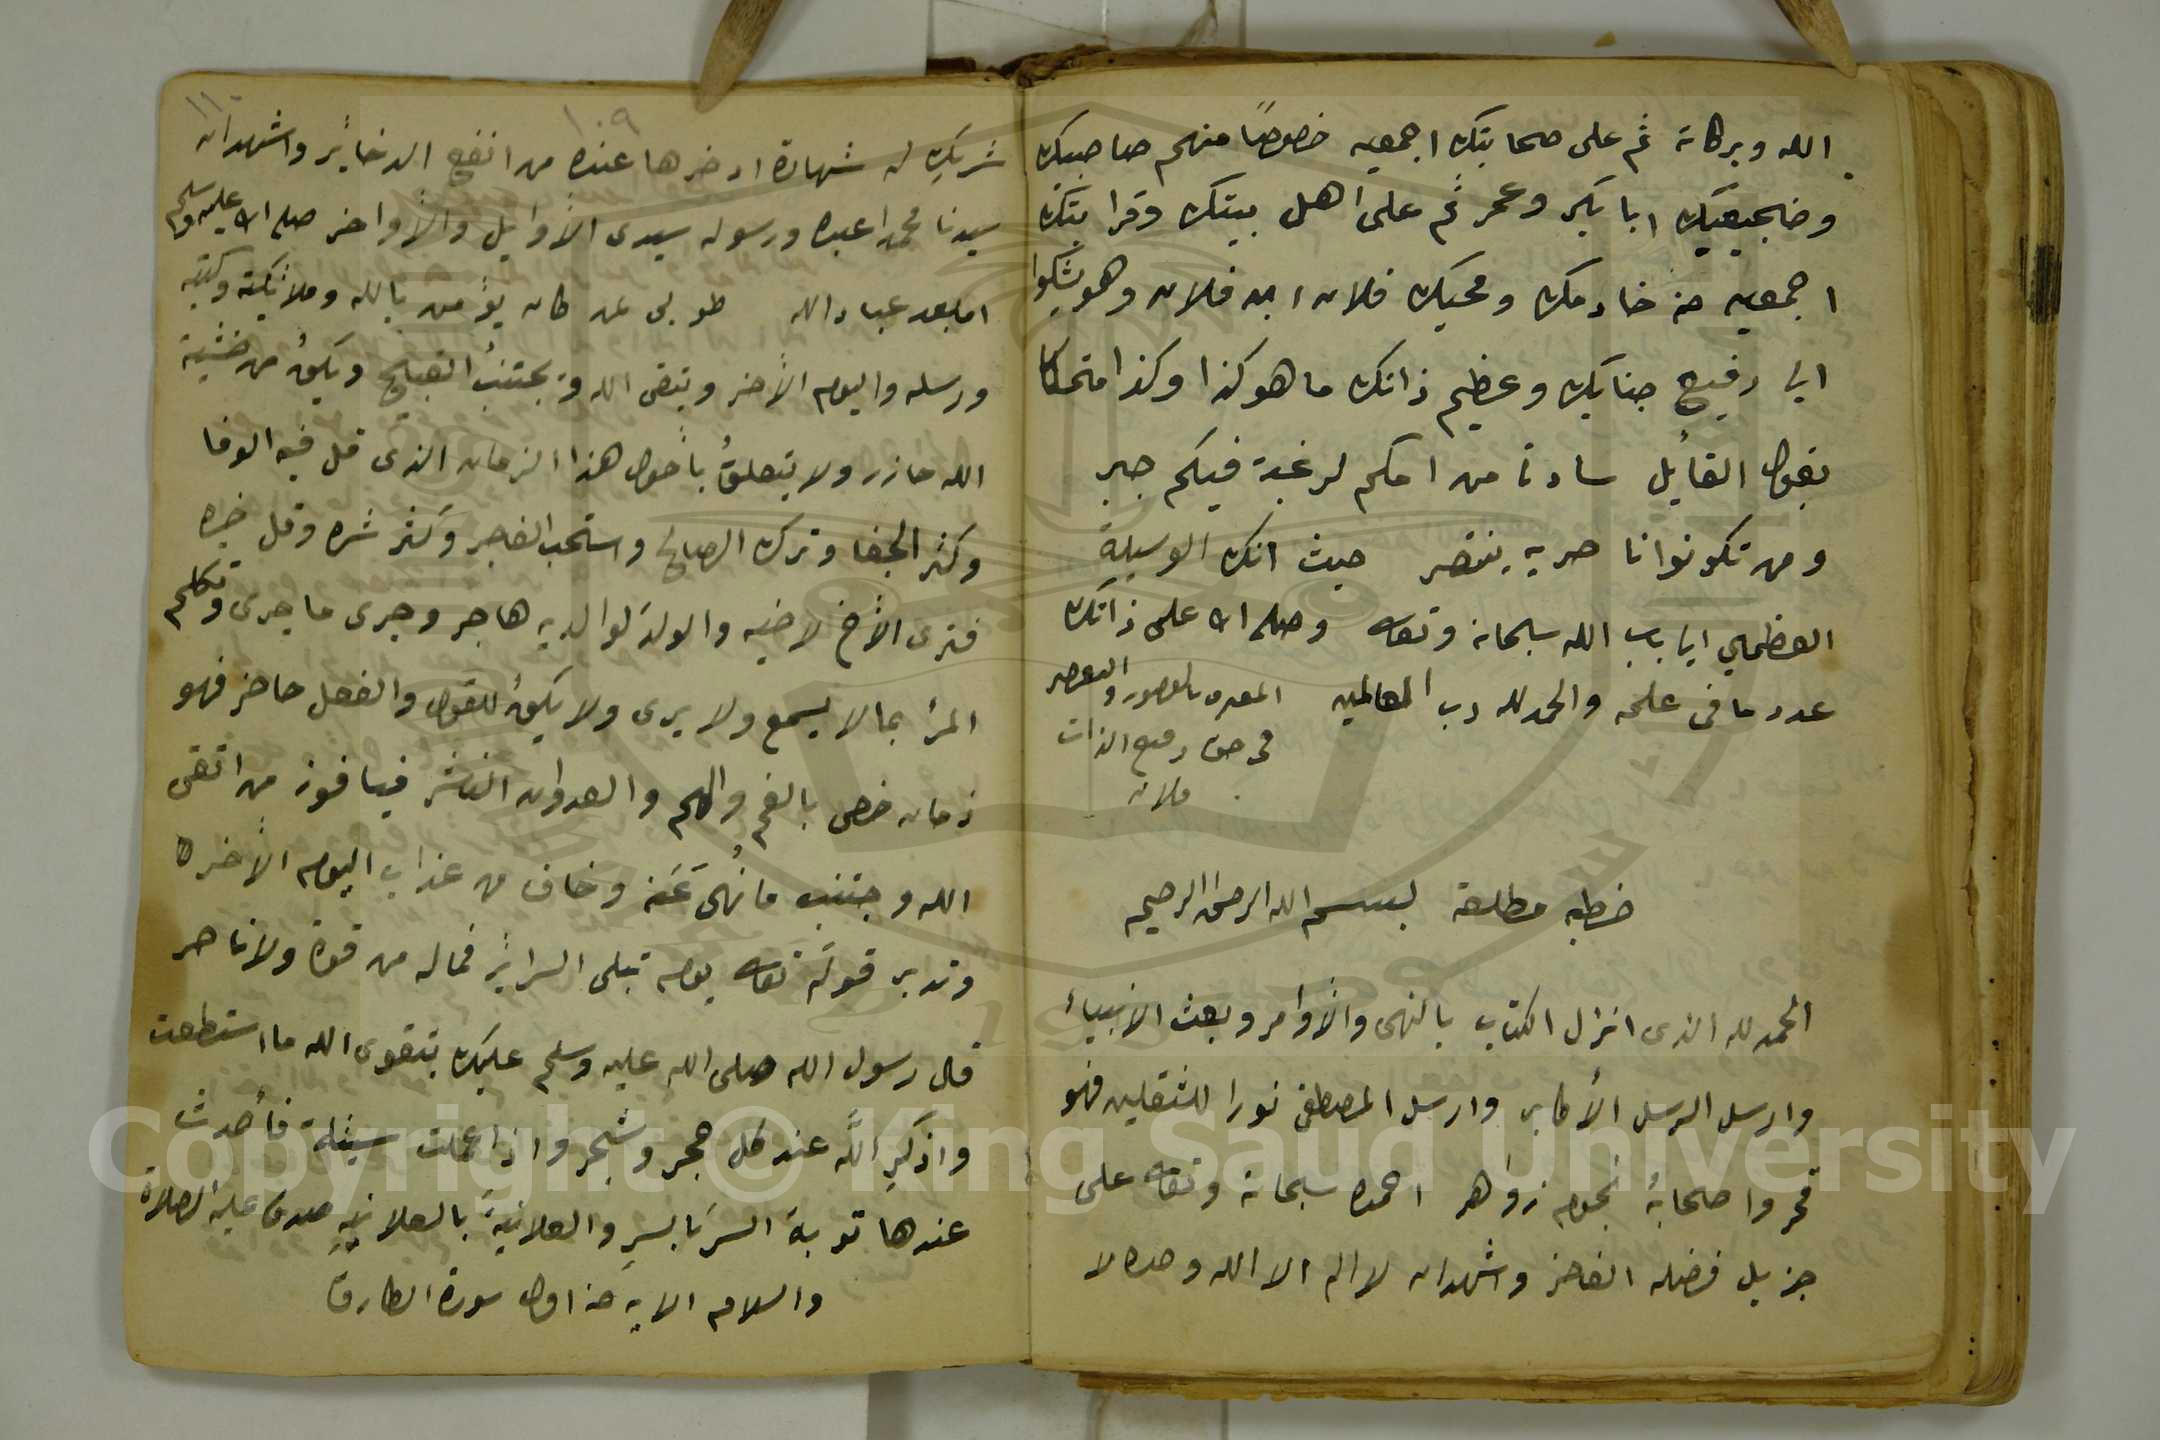 الله وبركاته ثم على صحابتك اجمعين خصوصًا منهم صاحبيك
وضجيعيك ابا بكر وعمر ثم على اهل بيتك وقرابتك
اجمعين من خادمك ومحبك فلان ابن فلان وهو يشكوا
الى رفيع جنابك وعظيم ذاتك ما هو كذا وكذا متمسكا
بقول القايل سادتا من امكم لرغبة فيكم جبر
ومن تكونوا ناصريه ينتصر حيث انك الوسيلة
العظمى ايا باب الله سبحانه وتعالى وصلى الله على ذاتك
عدد ما فى علمه والحمد لله رب العالمين
المعترف بالقصور والتقصير
فى حق رفيع الذات
فلان
خطبه مطلقة بسم الله الرحمن الرحيم
الحمد لله الذى انزل الكتاب بالنهى والأوامر وبعث الانبياء
وارسل الرسل الأكابر وارسل المصطفى نورا للثقلين فهو
قمر واصحابهُ نجوم زواهر احمده سبحانه وتعالى على
جزيل فضله الفاخر واشهد ان لا اله الا الله وحده لا
١٠٩
١١٠
شريك له شهادة ادخرها عنده من انفع الدخاير واشهد ان
سيدنا محمدا عبده ورسوله سيدى الأوايل والأواخر صلى الله عليه وسلم
اما بعد عباد الله طوبى لمن كان يؤمن بالله وملائكته وكتبه
ورسله واليوم الأخر ويتقى الله ويجتنبُ القبيح ويكونُ من خشية
الله حازر ولا يتعلقُ بأحوال هذا الزمان الذى قل فيه الوفا
وكثر الجفا وترك الصالح واستحب الفاجر وكثر شره وقل خيره
فترى الأخ لاخيه والولد لوالديه هاجر وجرى ما جرى وتكلم
المرأ بما لا يسمع ولا يرى ولا يكونُ للقول والفعل حاضر فهو
زمان خص بالغم والهم والعدوان الناشر فيا فوز من اتقى
الله وجتنب ما نُهى عَنه وخاف من عذاب اليوم الأخر
وتدبر قوله تعالى يوم تبلى السراير فما له من قوة ولا ناصر
قال رسول الله صلى الله عليه وسلم عليك بتقوى الله ما استطعت
واذكر اللَّه عند كل حجر وشجر واذا عملت سيئة فأحدث
عندها توبة السرَ بالسرِ والعلانيةَ بالعلانيةِ صدق عليه الصلاة
والسلام الايه من اول سورة الطارق
Copyright © King Saud University